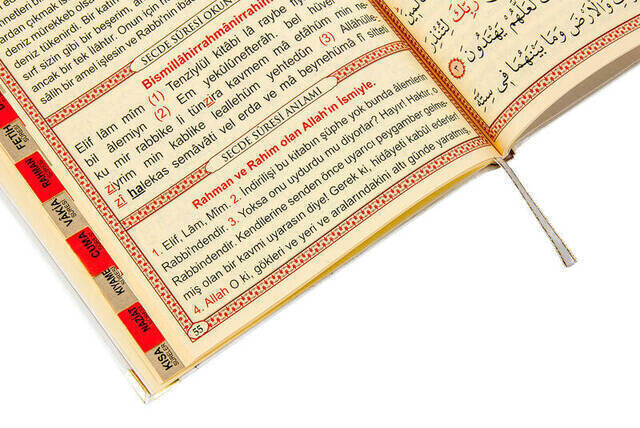 deniz mürekkep olsa
deniz tükenirdi. Bir katı
sırf sizin gibi bir beşerim, an
ancak bir tek ilâhtır. Onun için h
sâlih bir amel işlesin ve Rabbi'nin iba
SECDE SÛRESİ OKUN
Bismillâhirrahmânirrahîm
Elif lâm mîm (1) Tenzîylül kitâbi lâ raybe
bil âlemiyn (2) Em yekûlûnefterâh. bel hüvel
ku mir rabbike li tünzira kavmem mâ etâhüm min ne
ziyrim min kablike leallehüm yehtedûn (3) Allâhülle
zi halekas semâvâti vel erda ve mâ beynehümâ fî sitteti
SECDE SÛRESİ ANLAMI
Rahman ve Rahim olan Allah'ın İsmiyle.
1. Elif, Lâm, Mîm. 2. İndirilişi bu kitabın şüphe yok bunda âlemlerin
Rabbi'ndendir. 3. Yoksa onu uydurdu mu diyorlar? Hayır! Haktır, o
Rabbindendir. Kendilerine senden önce uyarıcı peygamber gelme-
miş olan bir kavmi uyarasın diye! Gerek ki, hidâyeti kabûl ederler!
4. Allah O ki, gökleri ve yeri ve aralarındakini altı günde yaratmış,
55
FETİH
RAHMAN
VAKİA
CUMA
KIYAME
NAZİAT
KISA
SÛRELER
رَبِّكَ لِتُنْذِرَ
لَعَلَّهُمْ يَهْتَدُونَ
وَالْأَرْضَ وَمَا بَيْنَهُمَا فِي سِتَّةِ